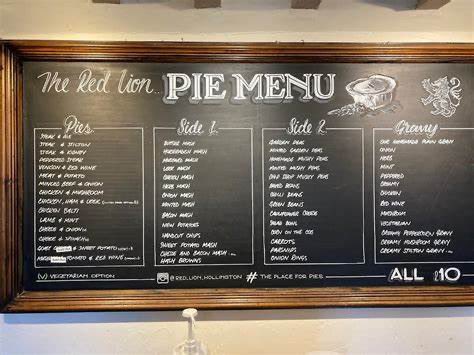 The Red Lion..
PIE MENU
Pies
STEAK & ALE
STEAK & STILTON
STEAK & KIDNEY
PEPPERED STEAK
VENISON & RED WINE
MEAT & POTATO
MINCED BEEF & ONION
CHICKEN & MUSHROOM
CHICKEN, HAM & LEEK
CHICKEN BALTI
LAMB & MINT
CHEESE & ONION
CHEESE & SPINACH
GOAT & SWEET POTATO
TOMATO & RED WINE
(V) VEGETARIAN OPTION
Side 1
BUTTER MASH
HORSERADISH MASH
MUSTARD MASH
LEEK MASH
CHEESE MASH
HERB MASH
ONION MASH
MINTED MASH
BACON MASH
NEW POTATOES
HANDCUT CHIPS
SWEET POTATO MASH
CHEESE AND BACON MASH
HASH BROWNS
Side 2
GARDEN PEAS
MINTED GARDEN PEAS
HOMEMADE MUSHY PEAS
MINTED MUSHY PEAS
MUSHY PEAS
BAKED BEANS
CHILLI BEANS
GREEN BEANS
CAULIFLOWER CHEESE
SALAD BOWL
CORN ON THE COB
CARROTS
PARSNIPS
ONION RINGS
Gravy
OUR HOMEMADE PLAIN GRAVY
ONION
HERB
MINT
PEPPERED
CREAMY
DUNGEON
RED WINE
MUSHROOM
VEGETARIAN
CREAMY PEPPERCORN GRAVY
CREAMY MUSHROOM GRAVY
CREAMY STILTON GRAVY
@RED.LION.HOLLINGTON
# THE PLACE FOR PIES
ALL £10